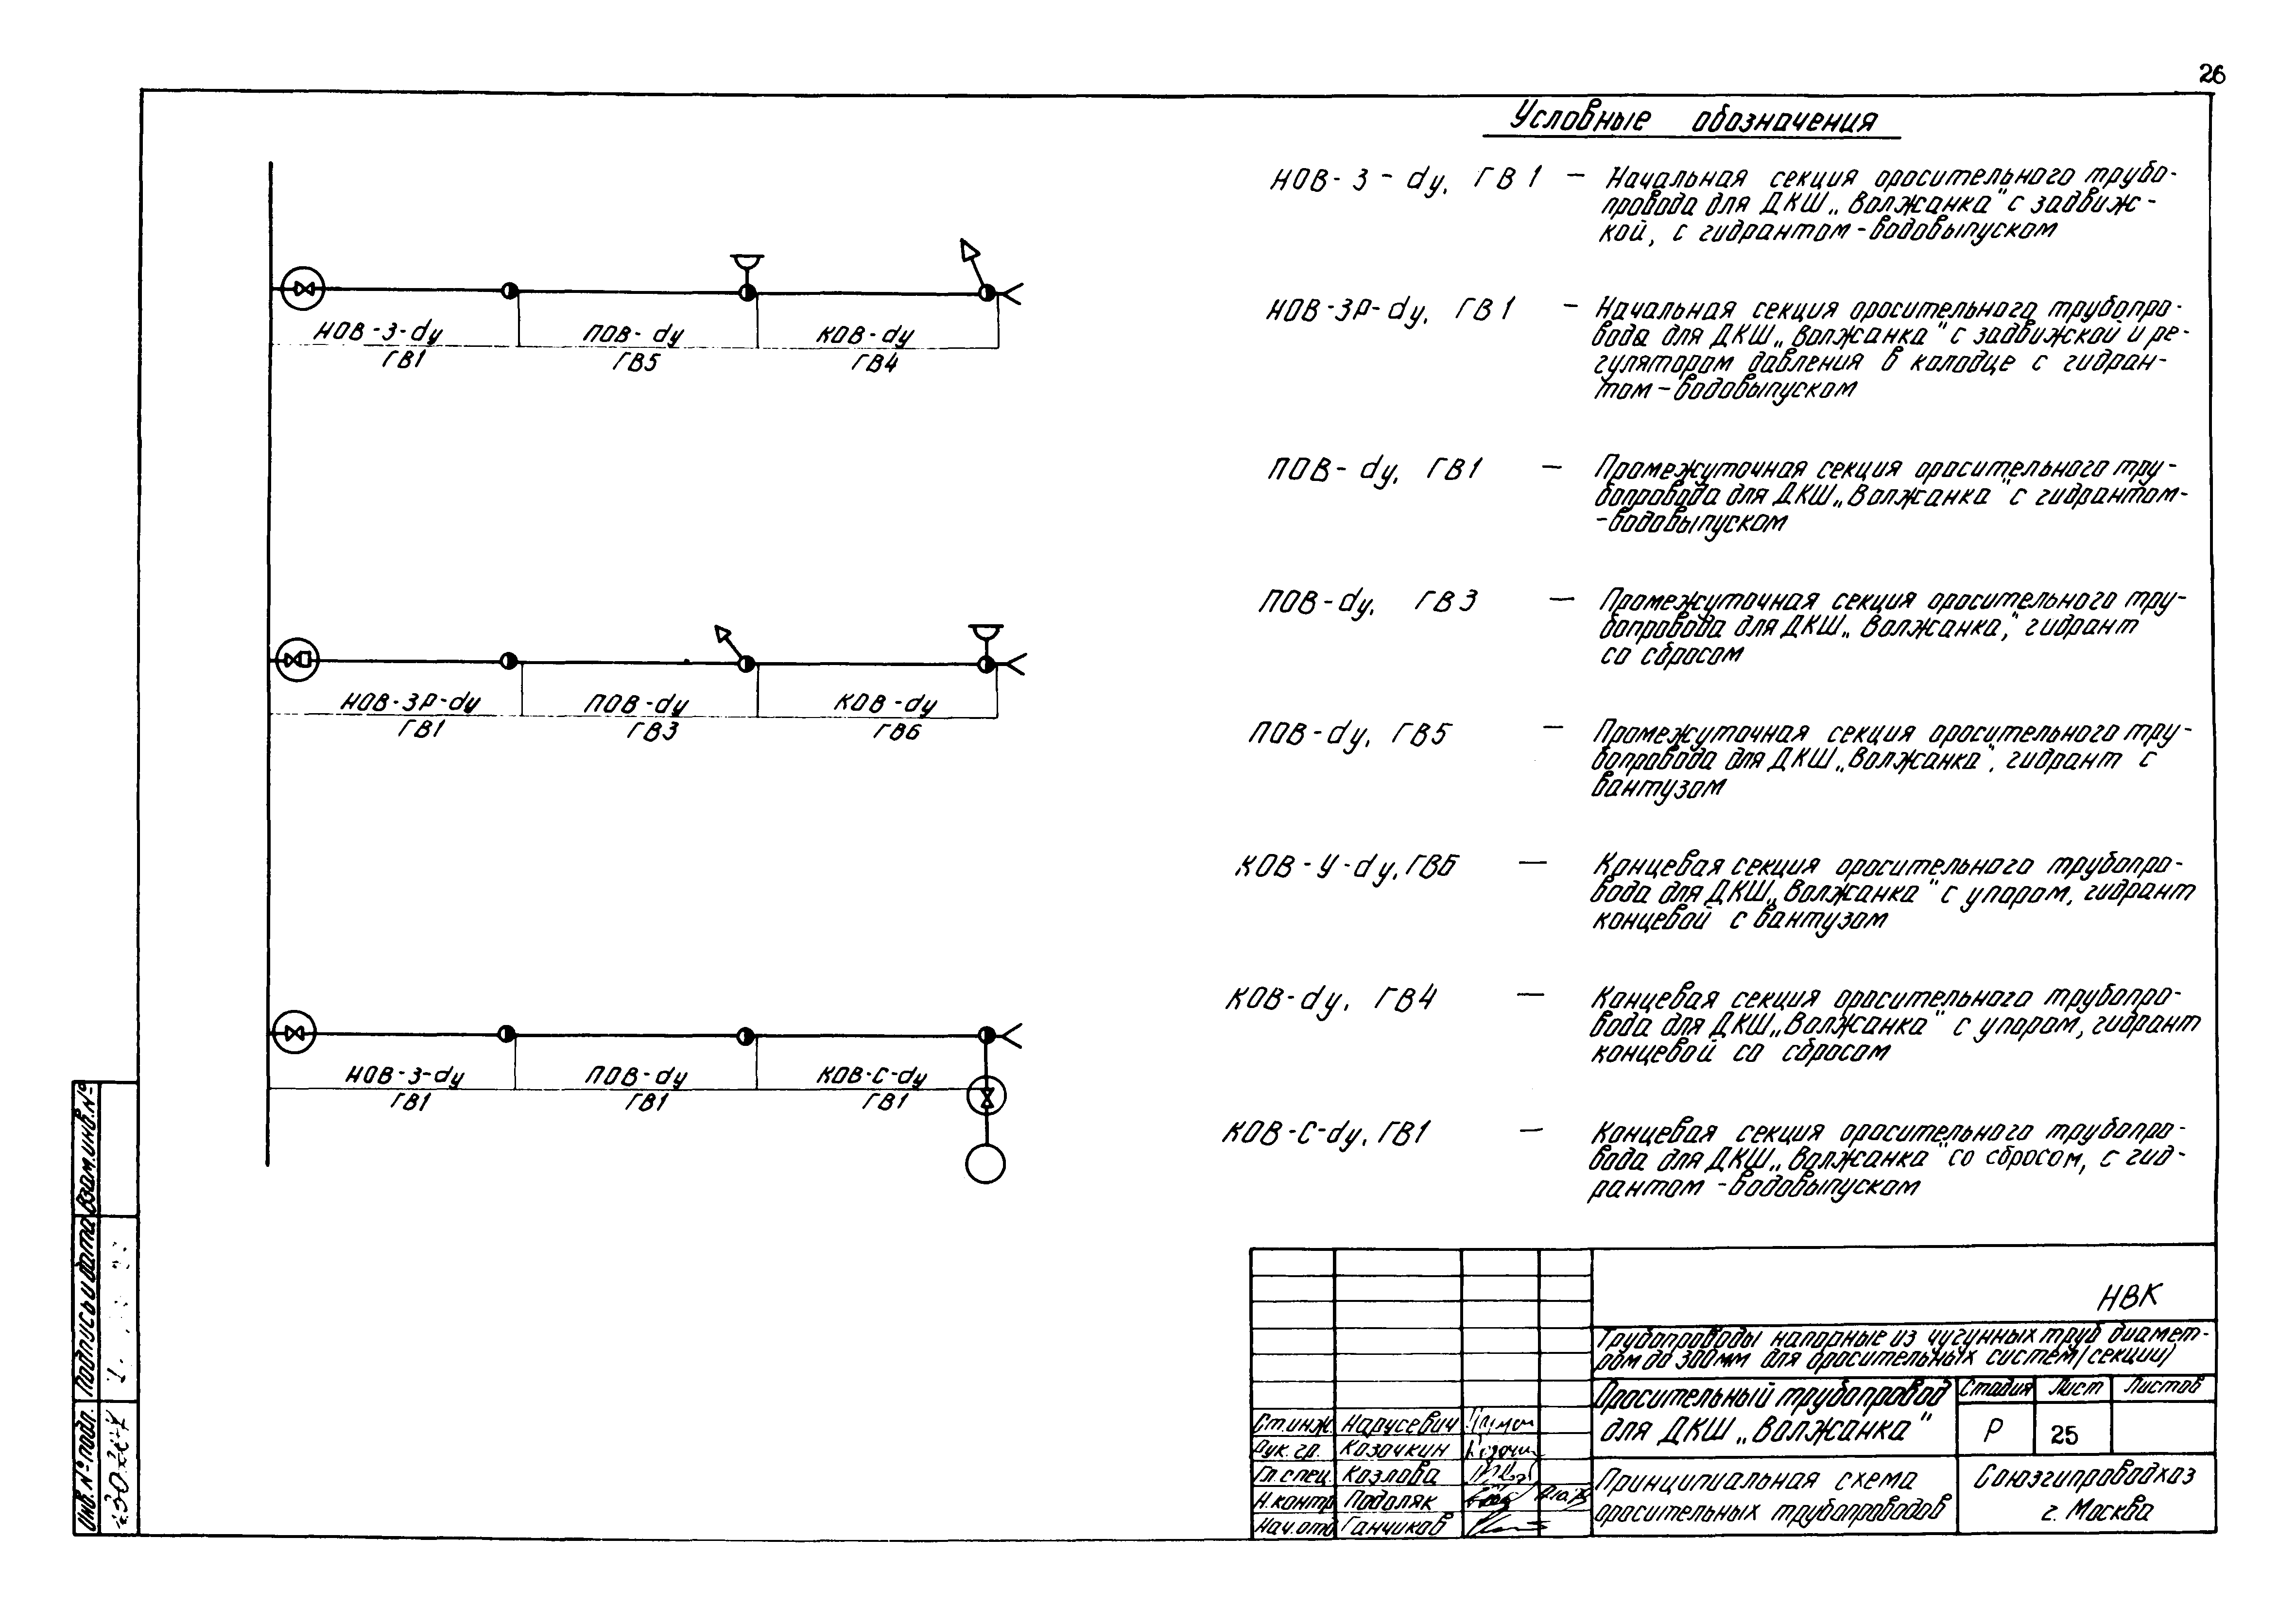 26
Условные обозначения
НОВ-З-dy, ГВ1 — Начальная секция оросительного трубо-
провода для ДКШ „Волжанка" с задвиж-
кой, с гидрантом-водовыпуском
НОВ-ЗР-dy, ГВ1 — Начальная секция оросительного трубопро-
вода для ДКШ „Волжанка" с задвижкой и ре-
гулятором давления в колодце с гидран-
том-водовыпуском
ПОВ-dy, ГВ1 — Промежуточная секция оросительного тру-
бопровода для ДКШ „Волжанка" с гидрантом-
-водовыпуском
ПОВ-dy, ГВ3 — Промежуточная секция оросительного тру-
бопровода для ДКШ „Волжанка", гидрант
со сбросом
ПОВ-dy, ГВ5 — Промежуточная секция оросительного тру-
бопровода для ДКШ „Волжанка", гидрант с
вантузом
КОВ-У-dy, ГВ6 — Концевая секция оросительного трубопро-
вода для ДКШ „Волжанка" с упором, гидрант
концевой с вантузом
КОВ-dy, ГВ4 — Концевая секция оросительного трубопро-
вода для ДКШ „Волжанка" с упором, гидрант
концевой со сбросом
КОВ-С-dy, ГВ1 — Концевая секция оросительного трубопро-
вода для ДКШ „Волжанка" со сбросом, с гид-
рантом-водовыпуском
НОВ-З-dy ПОВ-dy КОВ-dy
ГВ1 ГВ5 ГВ4
НОВ-ЗР-dy ПОВ-dy КОВ-dy
ГВ1 ГВ3 ГВ6
НОВ-З-dy ПОВ-dy КОВ-С-dy
ГВ1 ГВ1 ГВ1
НВК
Трубопроводы напорные из чугунных труб диамет-
ром до 300мм для оросительных систем (секции)
Оросительный трубопровод
для ДКШ „Волжанка"
Стадия Лист Листов
Р 25
Принципиальная схема
оросительных трубопроводов
Союзгипроводхоз
г. Москва
Ст.инж. Нарусевич
Рук. гр. Козочкин
Гл.спец. Козлова
Н.контр. Подоляк
Нач.отд. Ганчиков
Взам.инв.№
Подпись и дата
Инв.№ подл.